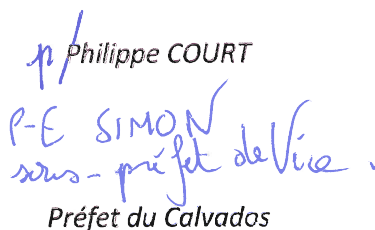 p/Philippe COURT
P-E SIMON
sous-préfet de Vire.
Préfet du Calvados